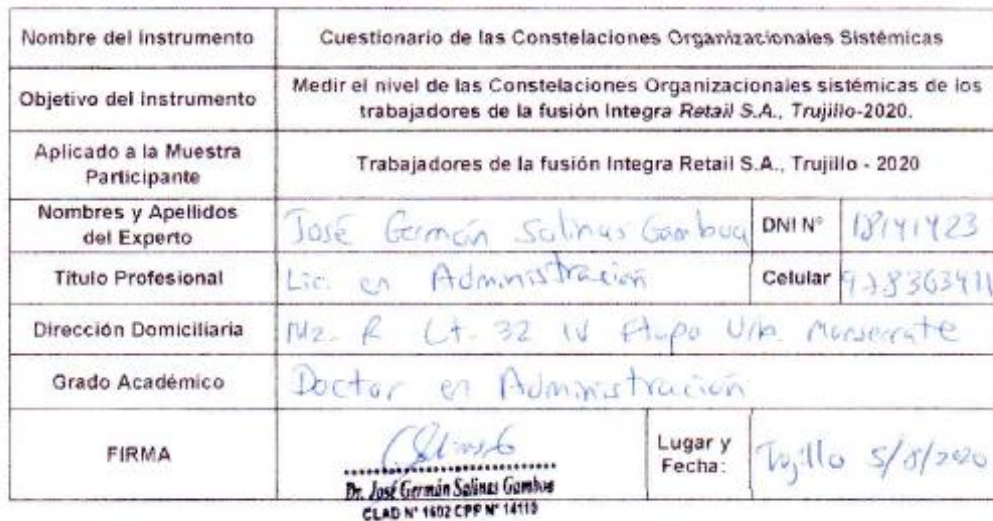 Nombre del Instrumento
Cuestionario de las Constelaciones Organizacionales Sistémicas
Objetivo del Instrumento
Medir el nivel de las Constelaciones Organizacionales sistémicas de los
trabajadores de la fusión Integra Retail S.A., Trujillo-2020.
Aplicado a la Muestra
Participante
Trabajadores de la fusión Integra Retail S.A., Trujillo - 2020
Nombres y Apellidos
del Experto
José Germán Salinas Gamboa
DNI N°
18141423
Título Profesional
Lic. en Administración
Celular
Dirección Domiciliaria
Mz. R Lt. 32 IV Etapa Urb. Monserrate
Grado Académico
Doctor en Administración
FIRMA
Dr. José Germán Salinas Gamboa
CLAD N° 1602 CPP N°
Lugar y
Fecha:
Trujillo 5/8/2020